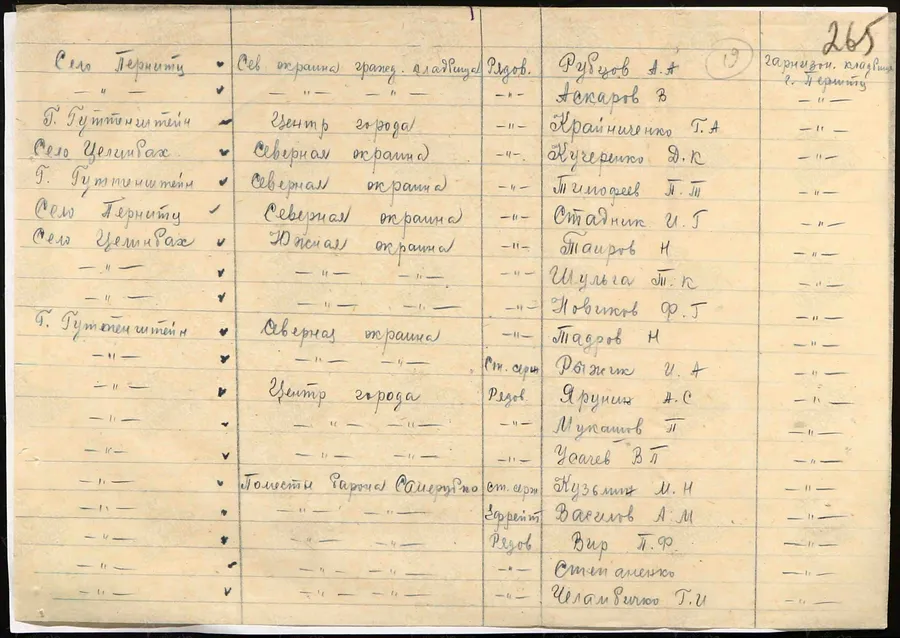 265
19
Село Пернитц Сев окраина гражд. кладбища Рядов. Рубцов А.А гарнизон. кладбище г. Пернитц
— " — — " — — " — Аскаров В — " —
Г. Гуттенштейн Центр города — " — Крайниченко Г.А — " —
Село Целинбах Северная окраина — " — Кучеренко Д.К — " —
Г. Гуттенштейн Северная окраина — " — Тимофеев П.Т — " —
Село Пернитц Северная окраина — " — Стадник И.Г — " —
Село Целинбах Южная окраина — " — Таиров Н — " —
— " — — " — — " — — " — Шульга Т.К — " —
— " — — " — — " — — " — Новиков Ф.Г — " —
Г. Гуттенштейн Северная окраина — " — Тадров Н — " —
— " — — " — — " — Ст. серж Рыжик И.А — " —
— " — Центр города Рядов Ярунин А.С — " —
— " — — " — — " — — " — Мукашов П — " —
— " — — " — — " — — " — Усачев В П — " —
— " — Поместье барона ст. серж Кузьмин М.Н — " —
— " — — " — — " — Ефрейт Василов А.М — " —
— " — — " — — " — Рядов Вир П.Ф — " —
— " — — " — — " — — " — Степаненко — " —
— " — — " — — " — — " — Челамбичко Г.И — " —